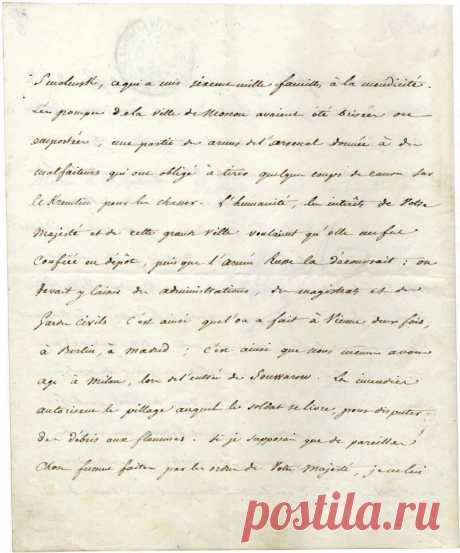 Smolensk, ce qui a mis six cent mille familles à la mendicité.
Les pompes de la ville de Moscou avaient été brisées ou
emportées, une partie des armes de l'arsenal donnée à des
malfaiteurs qui ont obligé à tirer quelques coups de canon sur
le Kremlin pour les chasser. L'humanité, les intérêts de Votre
Majesté et de cette grande Ville voulaient qu'elle me fut
confiée en dépôt, puisque l'armée Russe la découvrait : on
devait y laisser des administrations, des magistrats et des
Gardes civiles. C'est ainsi que l'on a fait à Vienne deux fois,
à Berlin, à Madrid ; c'est ainsi que nous-mêmes avons
agi à Milan, lors de l'entrée de Souwarow. Les incendies
autorisent le pillage auquel le soldat se livre, pour disputer
des débris aux flammes. Si je supposais que de pareilles
choses fussent faites par les ordres de Votre Majesté, je ne lui
postila.ru